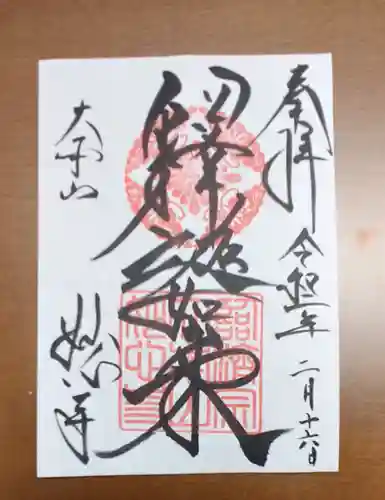 奉拝
令和年二月十六日
釋迦如来
大本山
妙心寺